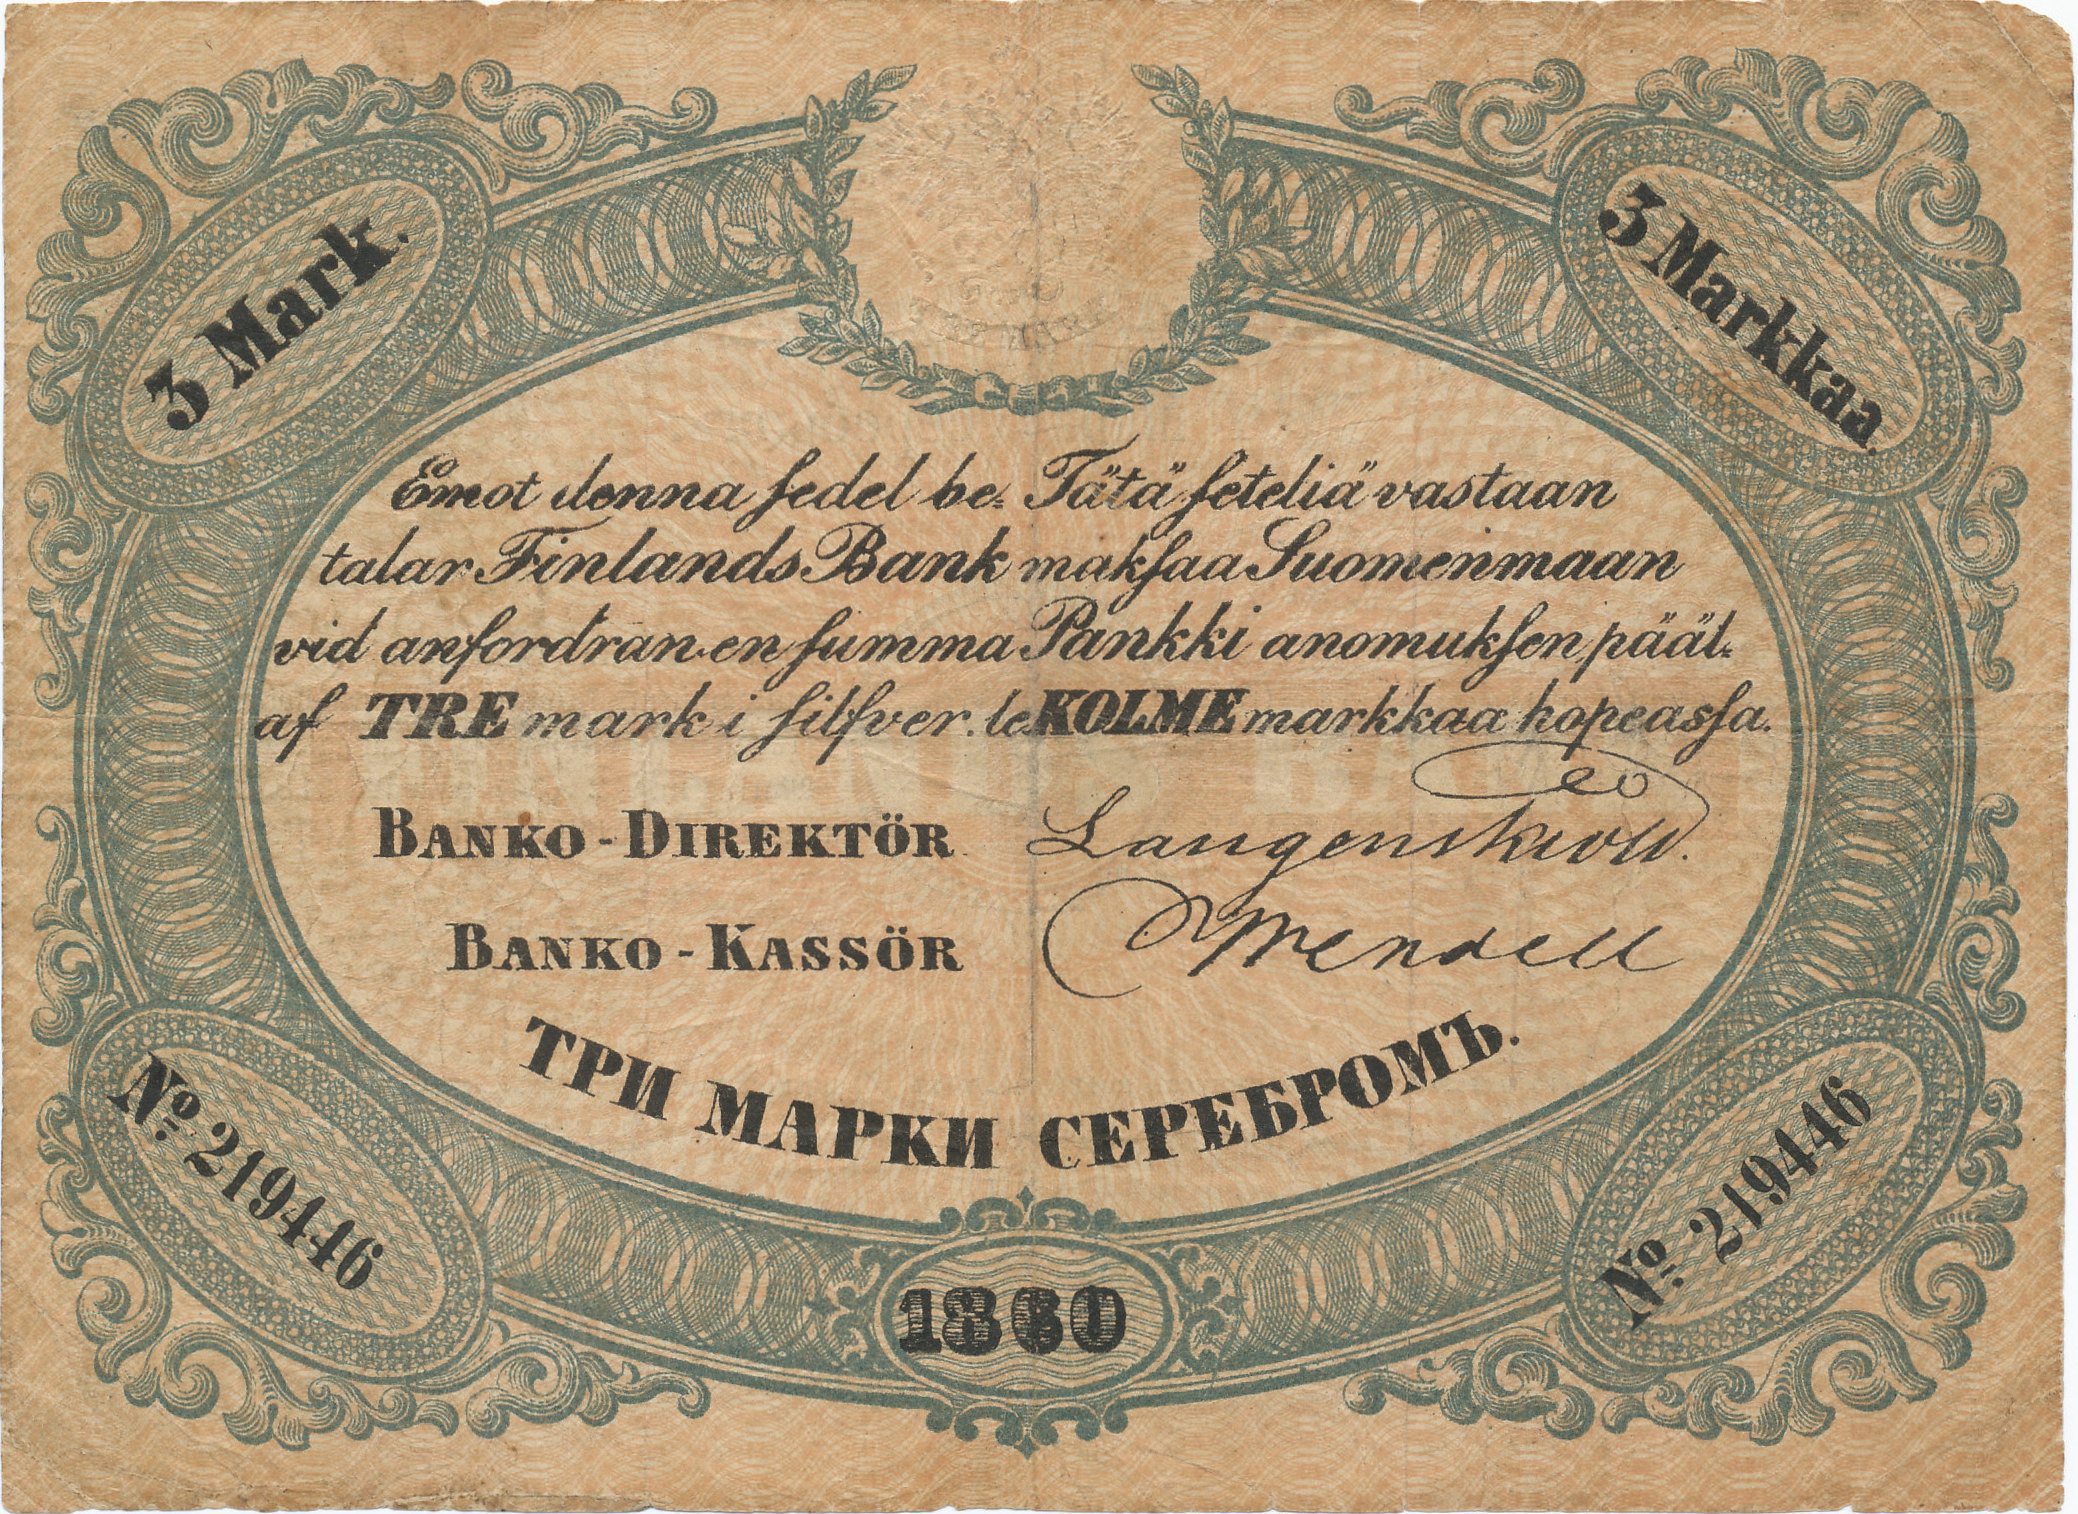 3 Mark.
3 Markkaa.
Emot denna sedel be= Tätä seteliä vastaan
talar Finlands Bank maksaa Suomenmaan
vid anfordran en summa Pankki anomuksen pääl=
af TRE mark i silfver. le KOLME markkaa hopeassa.
BANKO-DIREKTÖR Langenskiöld.
BANKO-KASSÖR Wendell
ТРИ МАРКИ СЕРЕБРОМЪ.
No. 219446
No. 219446
1860